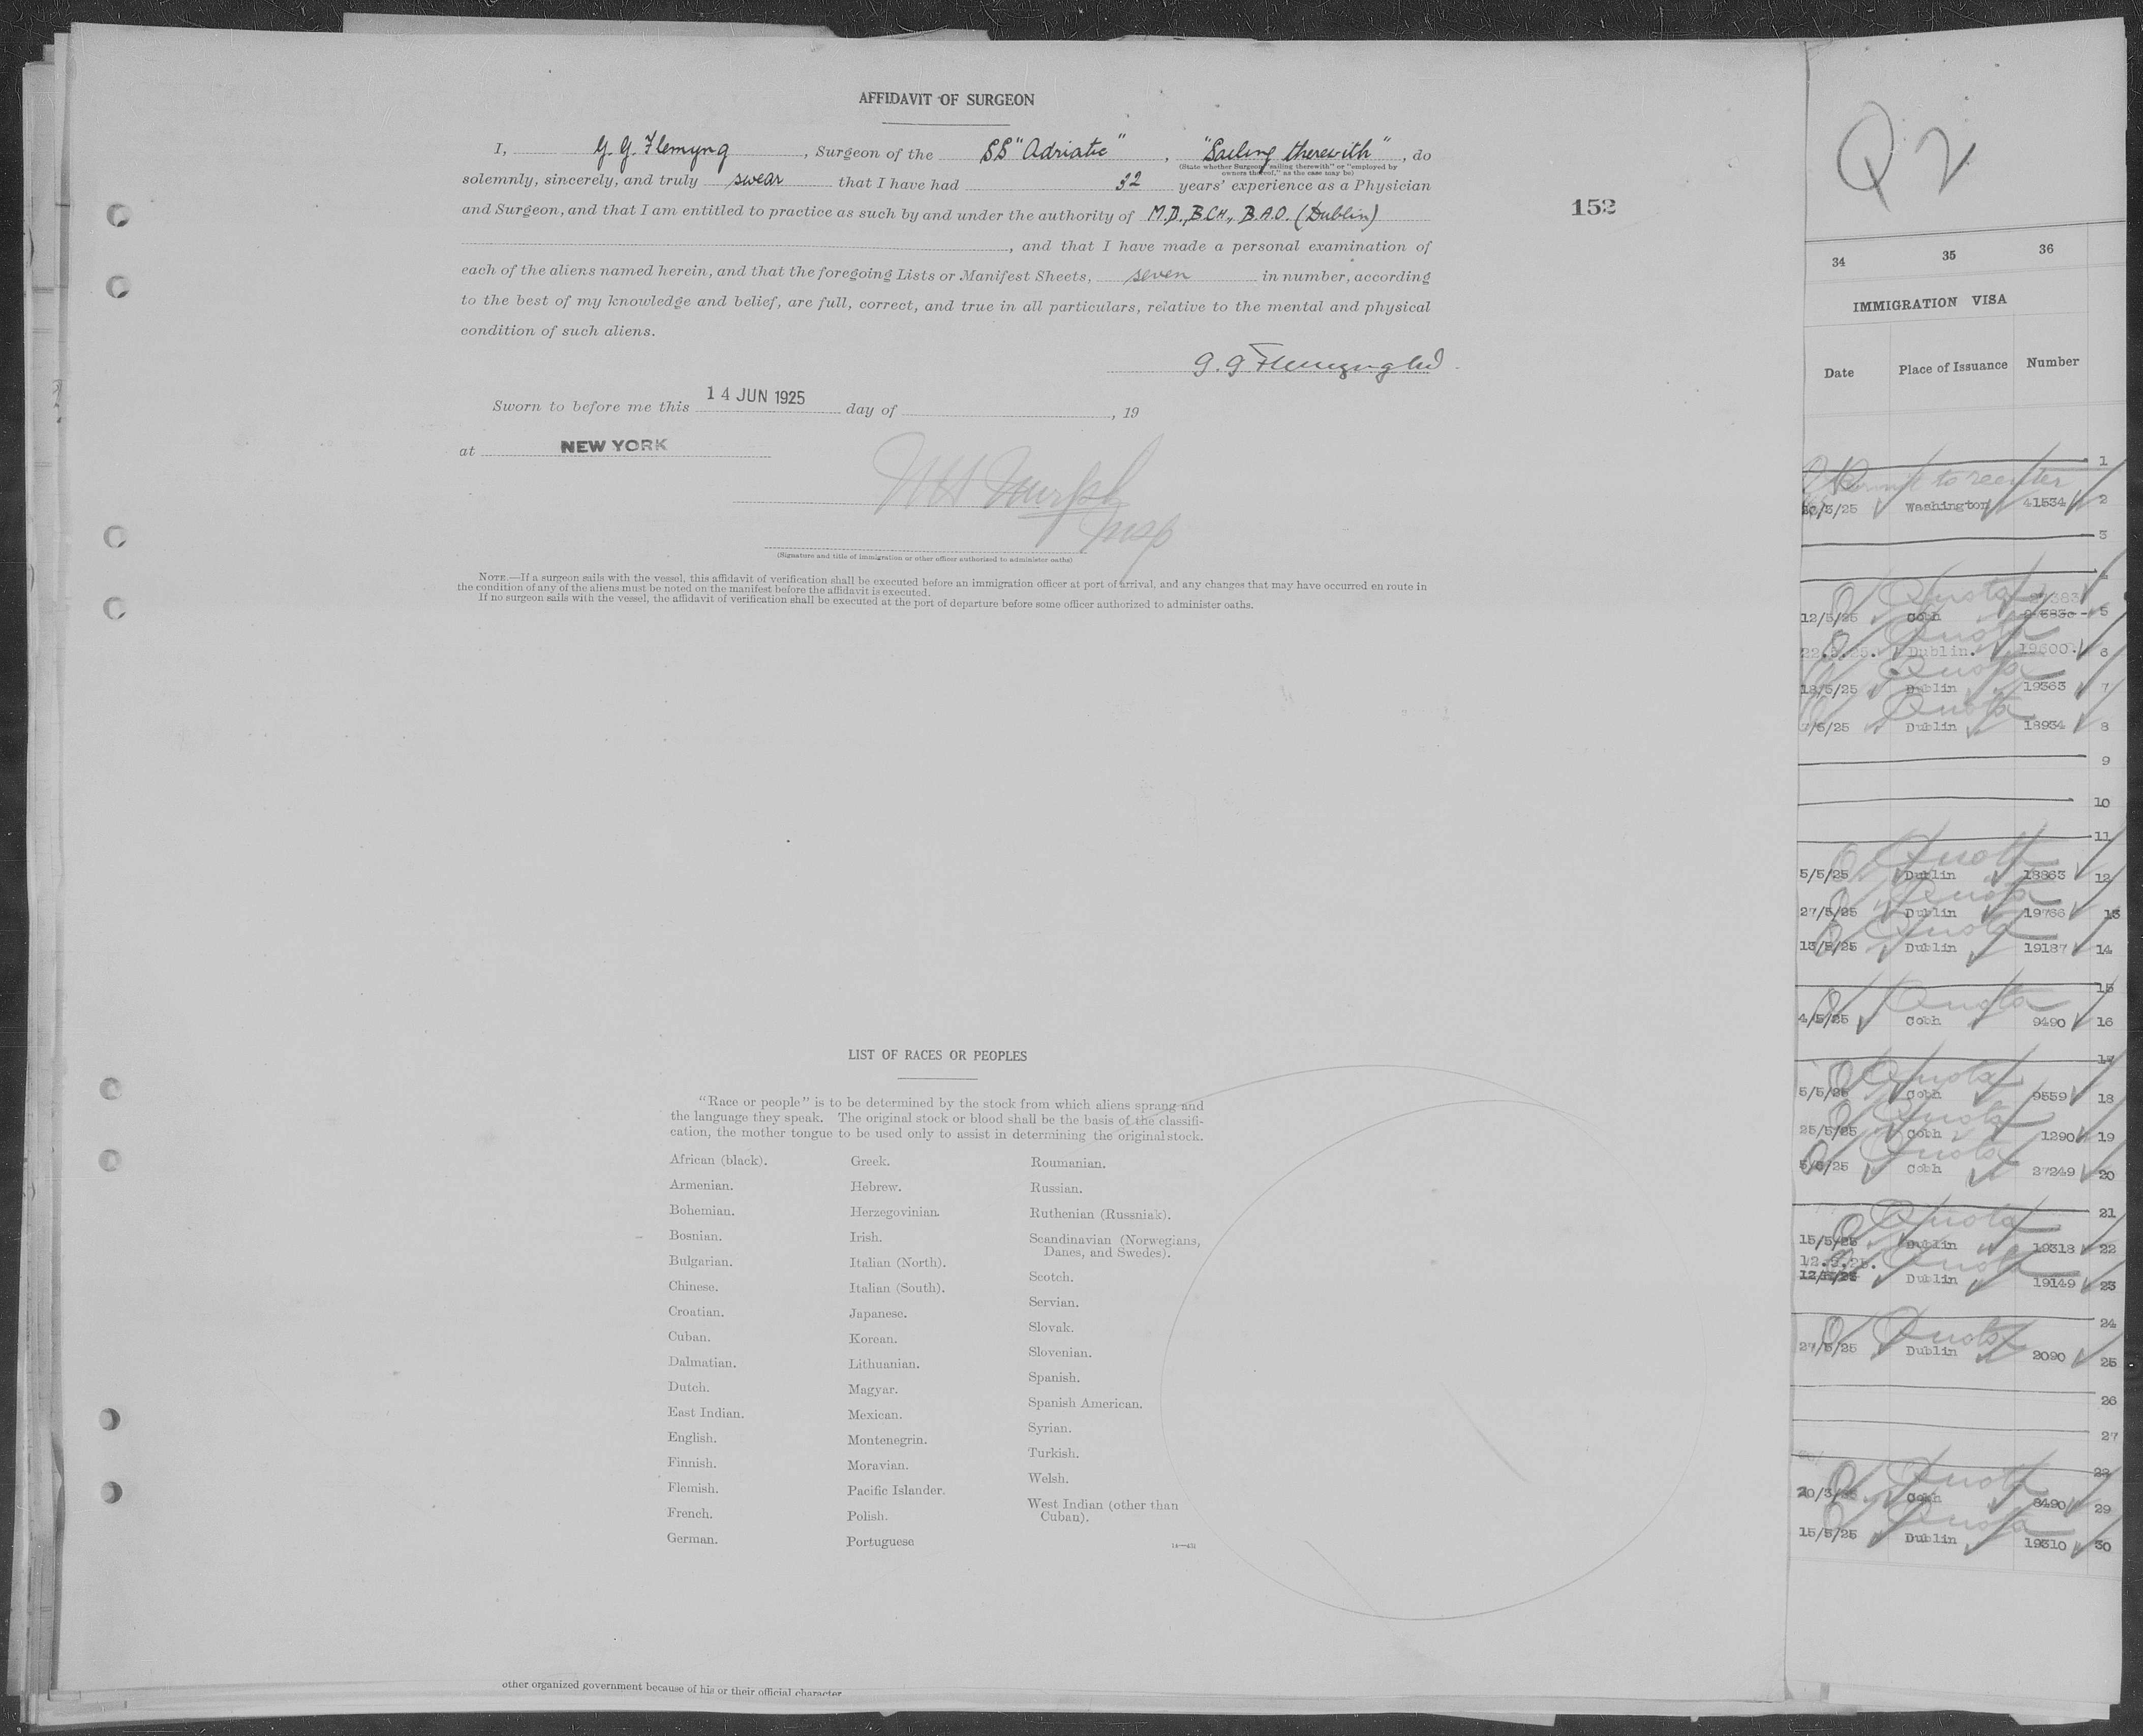 AFFIDAVIT OF SURGEON
I, G. G. Flemyng, Surgeon of the SS "Adriatic", "Sailing therewith", do
(State whether Surgeon "sailing therewith" or "employed by
owners thereof," as the case may be)
solemnly, sincerely, and truly swear that I have had 32 years' experience as a Physician
and Surgeon, and that I am entitled to practice as such by and under the authority of M.D., B.CH., B.A.O. (Dublin)
, and that I have made a personal examination of
each of the aliens named herein, and that the foregoing Lists or Manifest Sheets, seven in number, according
to the best of my knowledge and belief, are full, correct, and true in all particulars, relative to the mental and physical
condition of such aliens.
Sworn to before me this 14 JUN 1925 day of , 19
at NEW YORK
(Signature and title of immigration or other officer authorized to administer oaths)
NOTE.—If a surgeon sails with the vessel, this affidavit of verification shall be executed before an immigration officer at port of arrival, and any changes that may have occurred en route in
the condition of any of the aliens must be noted on the manifest before the affidavit is executed.
If no surgeon sails with the vessel, the affidavit of verification shall be executed at the port of departure before some officer authorized to administer oaths.
152
LIST OF RACES OR PEOPLES
"Race or people" is to be determined by the stock from which aliens sprang and
the language they speak. The original stock or blood shall be the basis of the classifi-
cation, the mother tongue to be used only to assist in determining the original stock.
African (black).
Armenian.
Bohemian.
Bosnian.
Bulgarian.
Chinese.
Croatian.
Cuban.
Dalmatian.
Dutch.
East Indian.
English.
Finnish.
Flemish.
French.
German.
Greek.
Hebrew.
Herzegovinian.
Irish.
Italian (North).
Italian (South).
Japanese.
Korean.
Lithuanian.
Magyar.
Mexican.
Montenegrin.
Moravian.
Pacific Islander.
Polish.
Portuguese
Roumanian.
Russian.
Ruthenian (Russniak).
Scandinavian (Norwegians,
Danes, and Swedes).
Scotch.
Servian.
Slovak.
Slovenian.
Spanish.
Spanish American.
Syrian.
Turkish.
Welsh.
West Indian (other than
Cuban).
other organized government because of his or their official character
Q 2
34 35 36
IMMIGRATION VISA
Date Place of Issuance Number
1
Permit to reenter
/3/25 Washington 41534 2
3
4
Quota
12/5/25 Cobh 5
Quota
Dublin. 19600. 6
Quota
18/5/25 Dublin 19363 7
Quota
/5/25 Dublin 18934 8
9
10
11
Quota
5/5/25 Dublin 18863 12
Quota
27/5/25 Dublin 19766 13
Quota
13/5/25 Dublin 19187 14
15
Quota
4/5/25 Cobh 9490 16
17
Quota
5/5/25 Cobh 9559 18
Quota
25/5/25 Cobh 1290 19
Quota
5/6/25 Cobh 27249 20
21
Quota
15/5/25 Dublin 19318 22
Quota
Dublin 19149 23
24
Quota
27/5/25 Dublin 2090 25
26
27
28
Quota
20/3/25 Cobh 8490 29
Quota
15/5/25 Dublin 19310 30